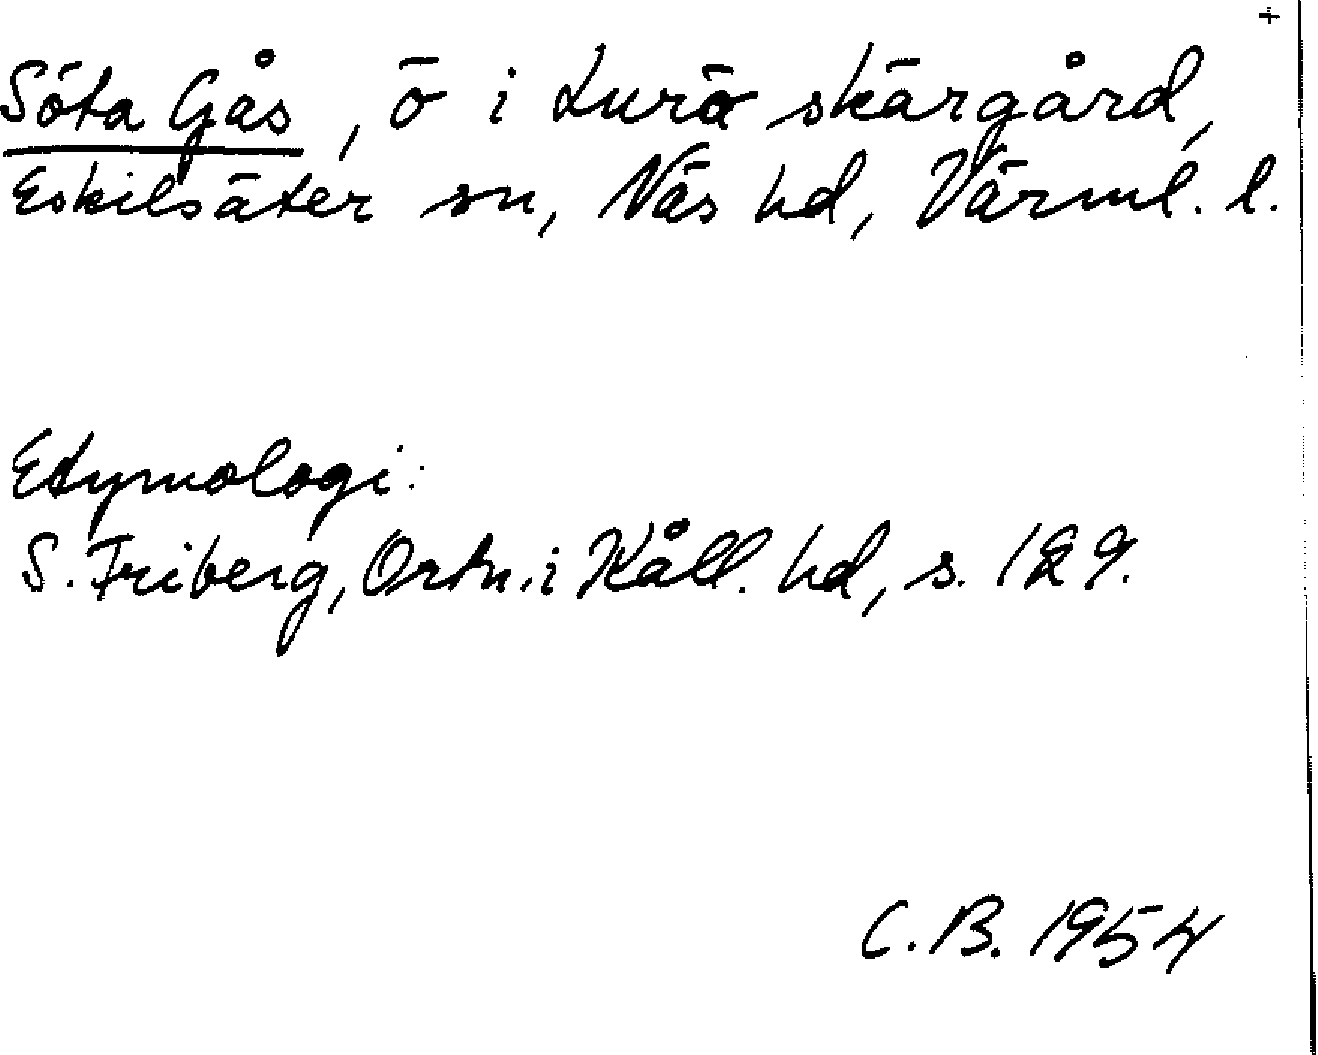 +
Söta Gås, ö i Lurö skärgård,
Eskilsäter sn, Näs hd, Värml. l.
Etymologi:
S. Friberg, Ortn. i Kåll. hd, s. 129.
C.B. 1954